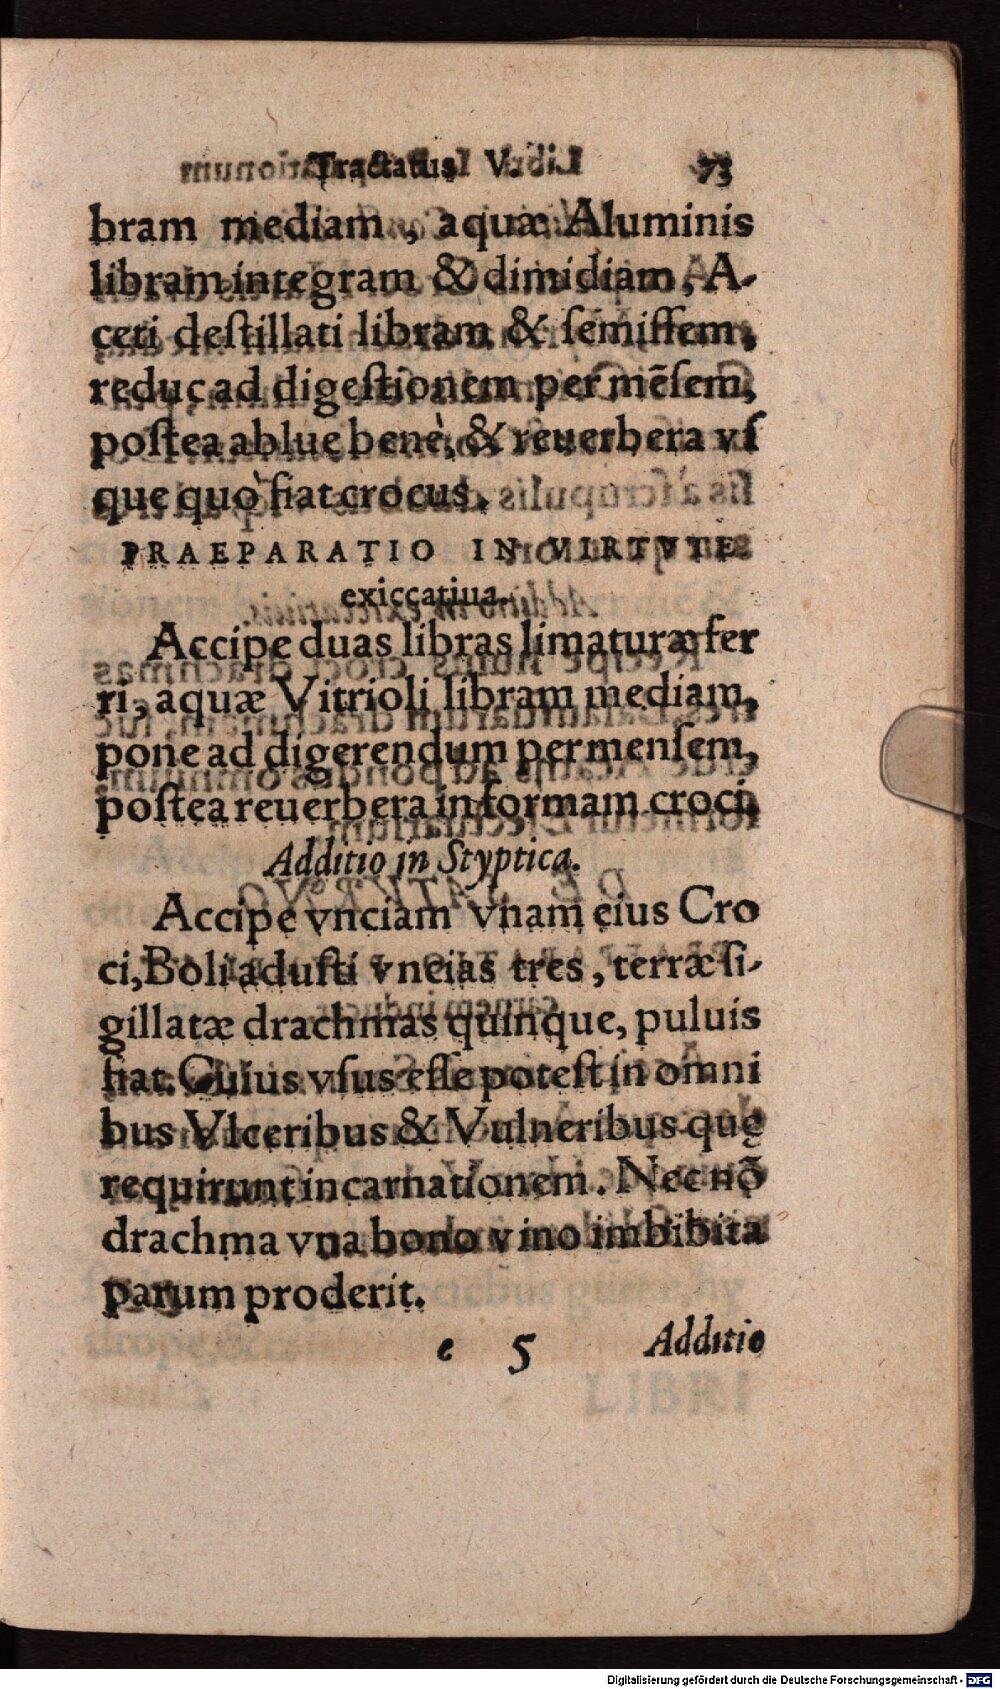 Tractatus V. 73
bram mediam, aquæ Aluminis
libram integram & dimidiam, A-
ceti deſtillati libram & ſemiſſem,
reduc ad digeſtionem per mēſem,
poſtea ablue benè, & reuerbera vſ
que quò fiat crocus.
PRAEPARATIO IN VIRTVTE
exiccatiua.
Accipe duas libras limaturæ fer
ri, aquæ Vitrioli libram mediam,
pone ad digerendum per menſem,
poſtea reuerbera in formam croci.
Additio in Styptica.
Accipe vnciam vnam eius Cro
ci, Boli aduſti vncias tres, terræ ſi-
gillatæ drachmas quinque, puluis
fiat. Cuius vſus eſſe poteſt in omni
bus Vlceribus & Vulneribus quę
requirunt incarnationem. Nec nō
drachma vna bono vino imbibita
parum proderit.
e 5 Additio
LIBRI
Digitalisierung gefördert durch die Deutsche Forschungsgemeinschaft - DFG